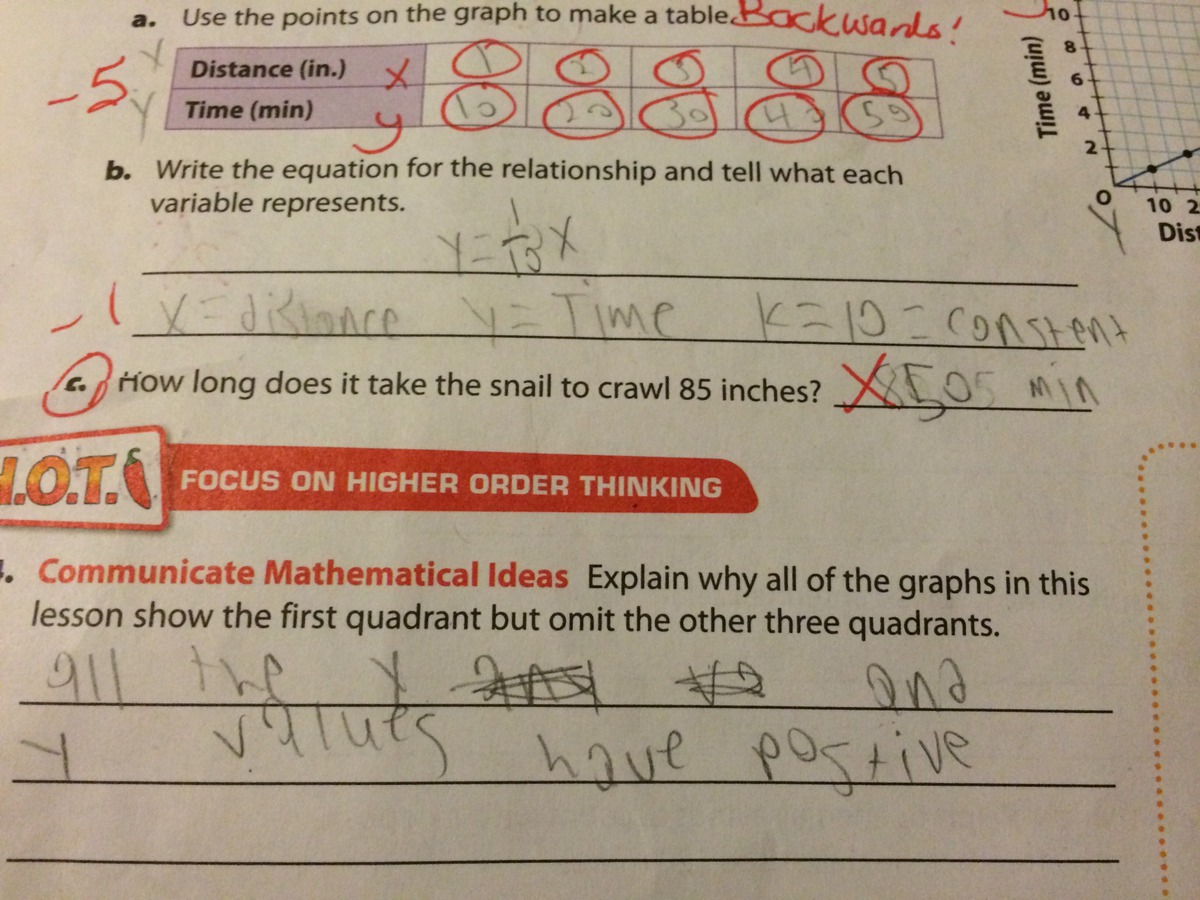 a. Use the points on the graph to make a table. Backwards!
-5
X Distance (in.) X 1 2 3 4 5
Y Time (min) y 10 20 30 40 50
b. Write the equation for the relationship and tell what each
variable represents.
Y = 1/10 X
-1 X = distance Y = Time K = 10 = constent
c. How long does it take the snail to crawl 85 inches? X 8.505 min
10
8
6
4
2
O 10 2
Time (min)
Y Dist
H.O.T. FOCUS ON HIGHER ORDER THINKING
. Communicate Mathematical Ideas Explain why all of the graphs in this
lesson show the first quadrant but omit the other three quadrants.
all the X and
Y values have postive